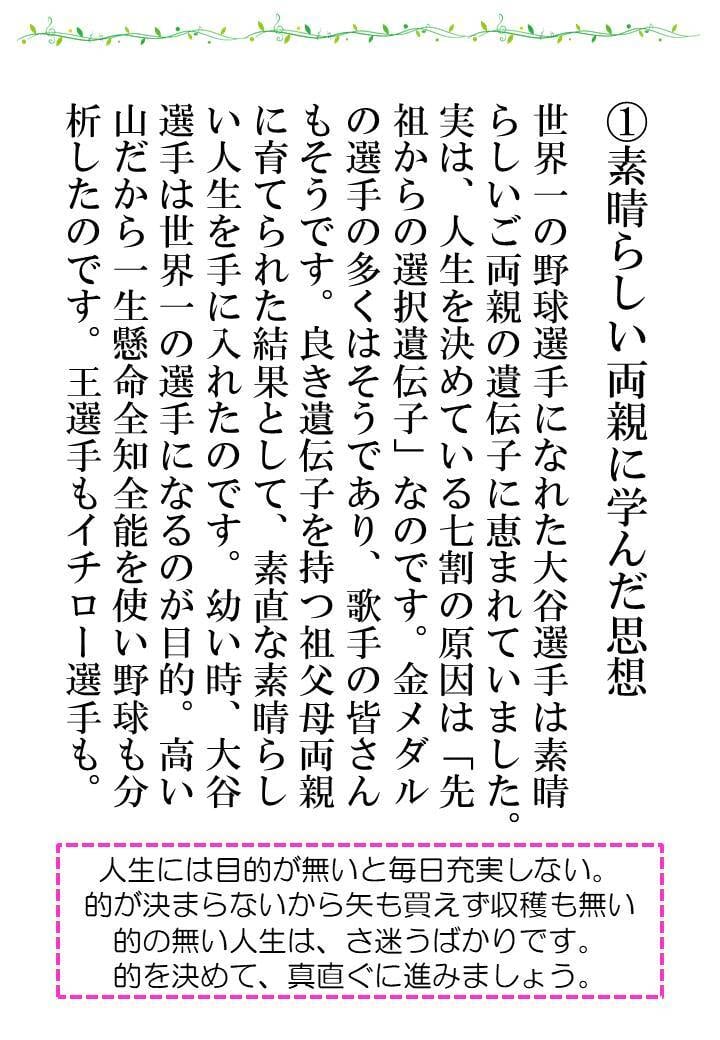 ①素晴らしい両親に学んだ思想
世界一の野球選手になれた大谷選手は素晴
らしいご両親の遺伝子に恵まれていました。
実は、人生を決めている七割の原因は「先
祖からの選択遺伝子」なのです。金メダル
の選手の多くはそうであり、歌手の皆さん
もそうです。良き遺伝子を持つ祖父母両親
に育てられた結果として、素直な素晴らし
い人生を手に入れたのです。幼い時、大谷
選手は世界一の選手になるのが目的。高い
山だから一生懸命全知全能を使い野球も分
析したのです。王選手もイチロー選手も。
人生には目的が無いと毎日充実しない。
的が決まらないから矢も買えず収穫も無い
的の無い人生は、さ迷うばかりです。
的を決めて、真直ぐに進みましょう。